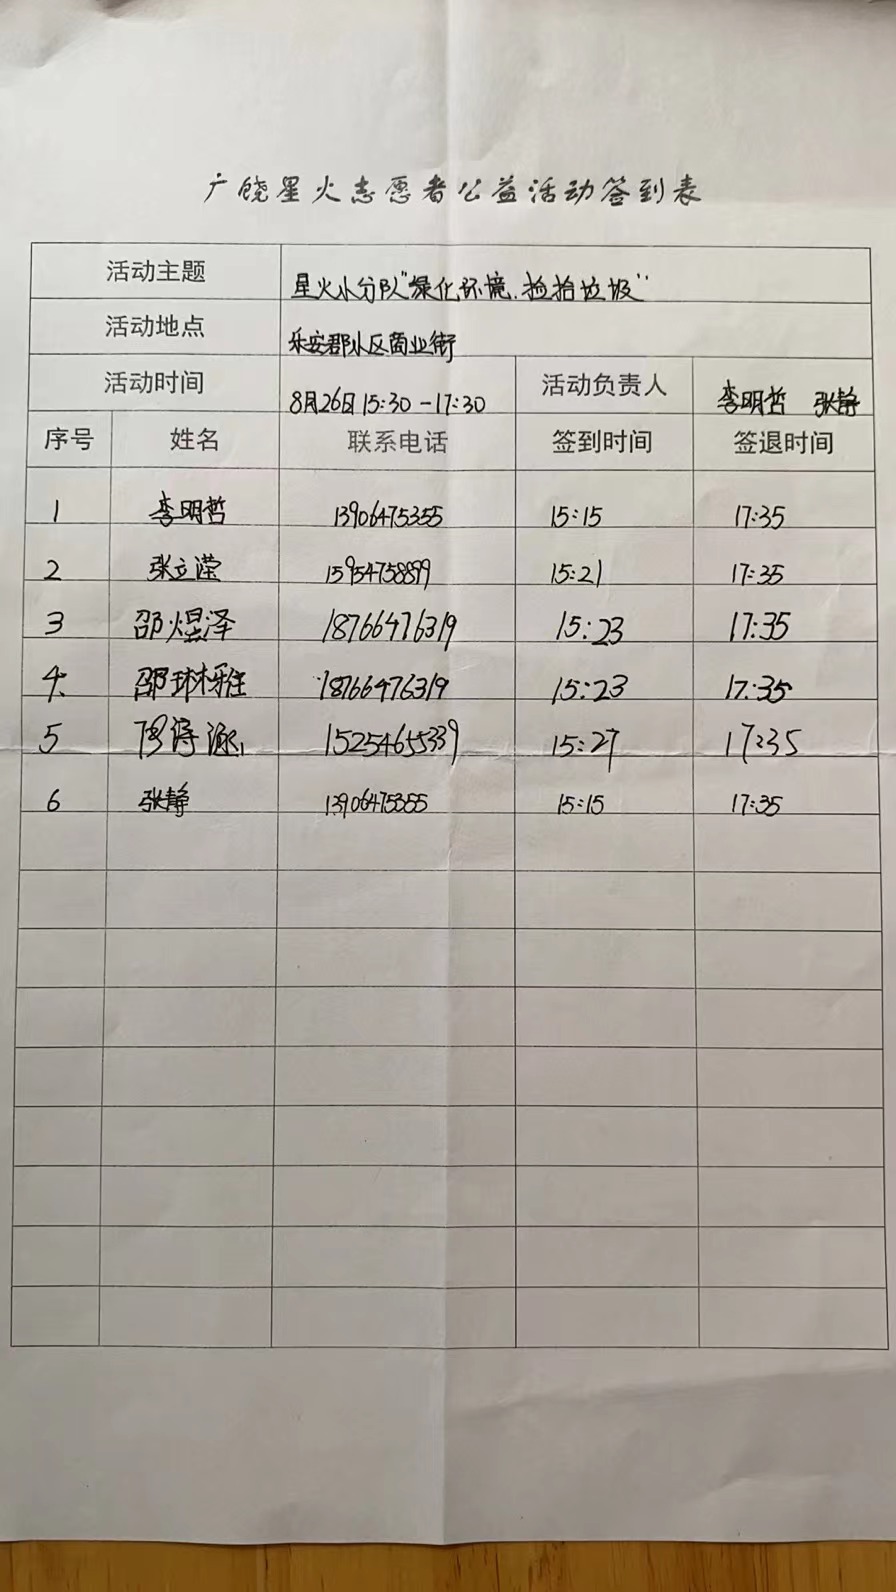 广饶星火志愿者公益活动签到表
活动主题 星火小分队"绿化环境.捡拾垃圾"
活动地点 乐安郡小区商业街
活动时间 8月26日15:30-17:30 活动负责人 李明哲 张静
序号 姓名 联系电话 签到时间 签退时间
1 李明哲 13906475355 15:15 17:35
2 张立滢 15954758899 15:21 17:35
3 邵煜泽 18766476319 15:23 17:35
4. 邵琳 18766476319 15:23 17:35
5 15254655339 15:27 17:35
6 张静 13906475355 15:15 17:35